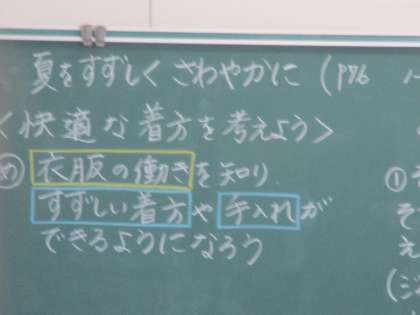 夏をすずしく さわやかに (P76
<快適な着方を考えよう>
め 衣服の働きを知り
すずしい着方や手入れが
できるようになろう
①